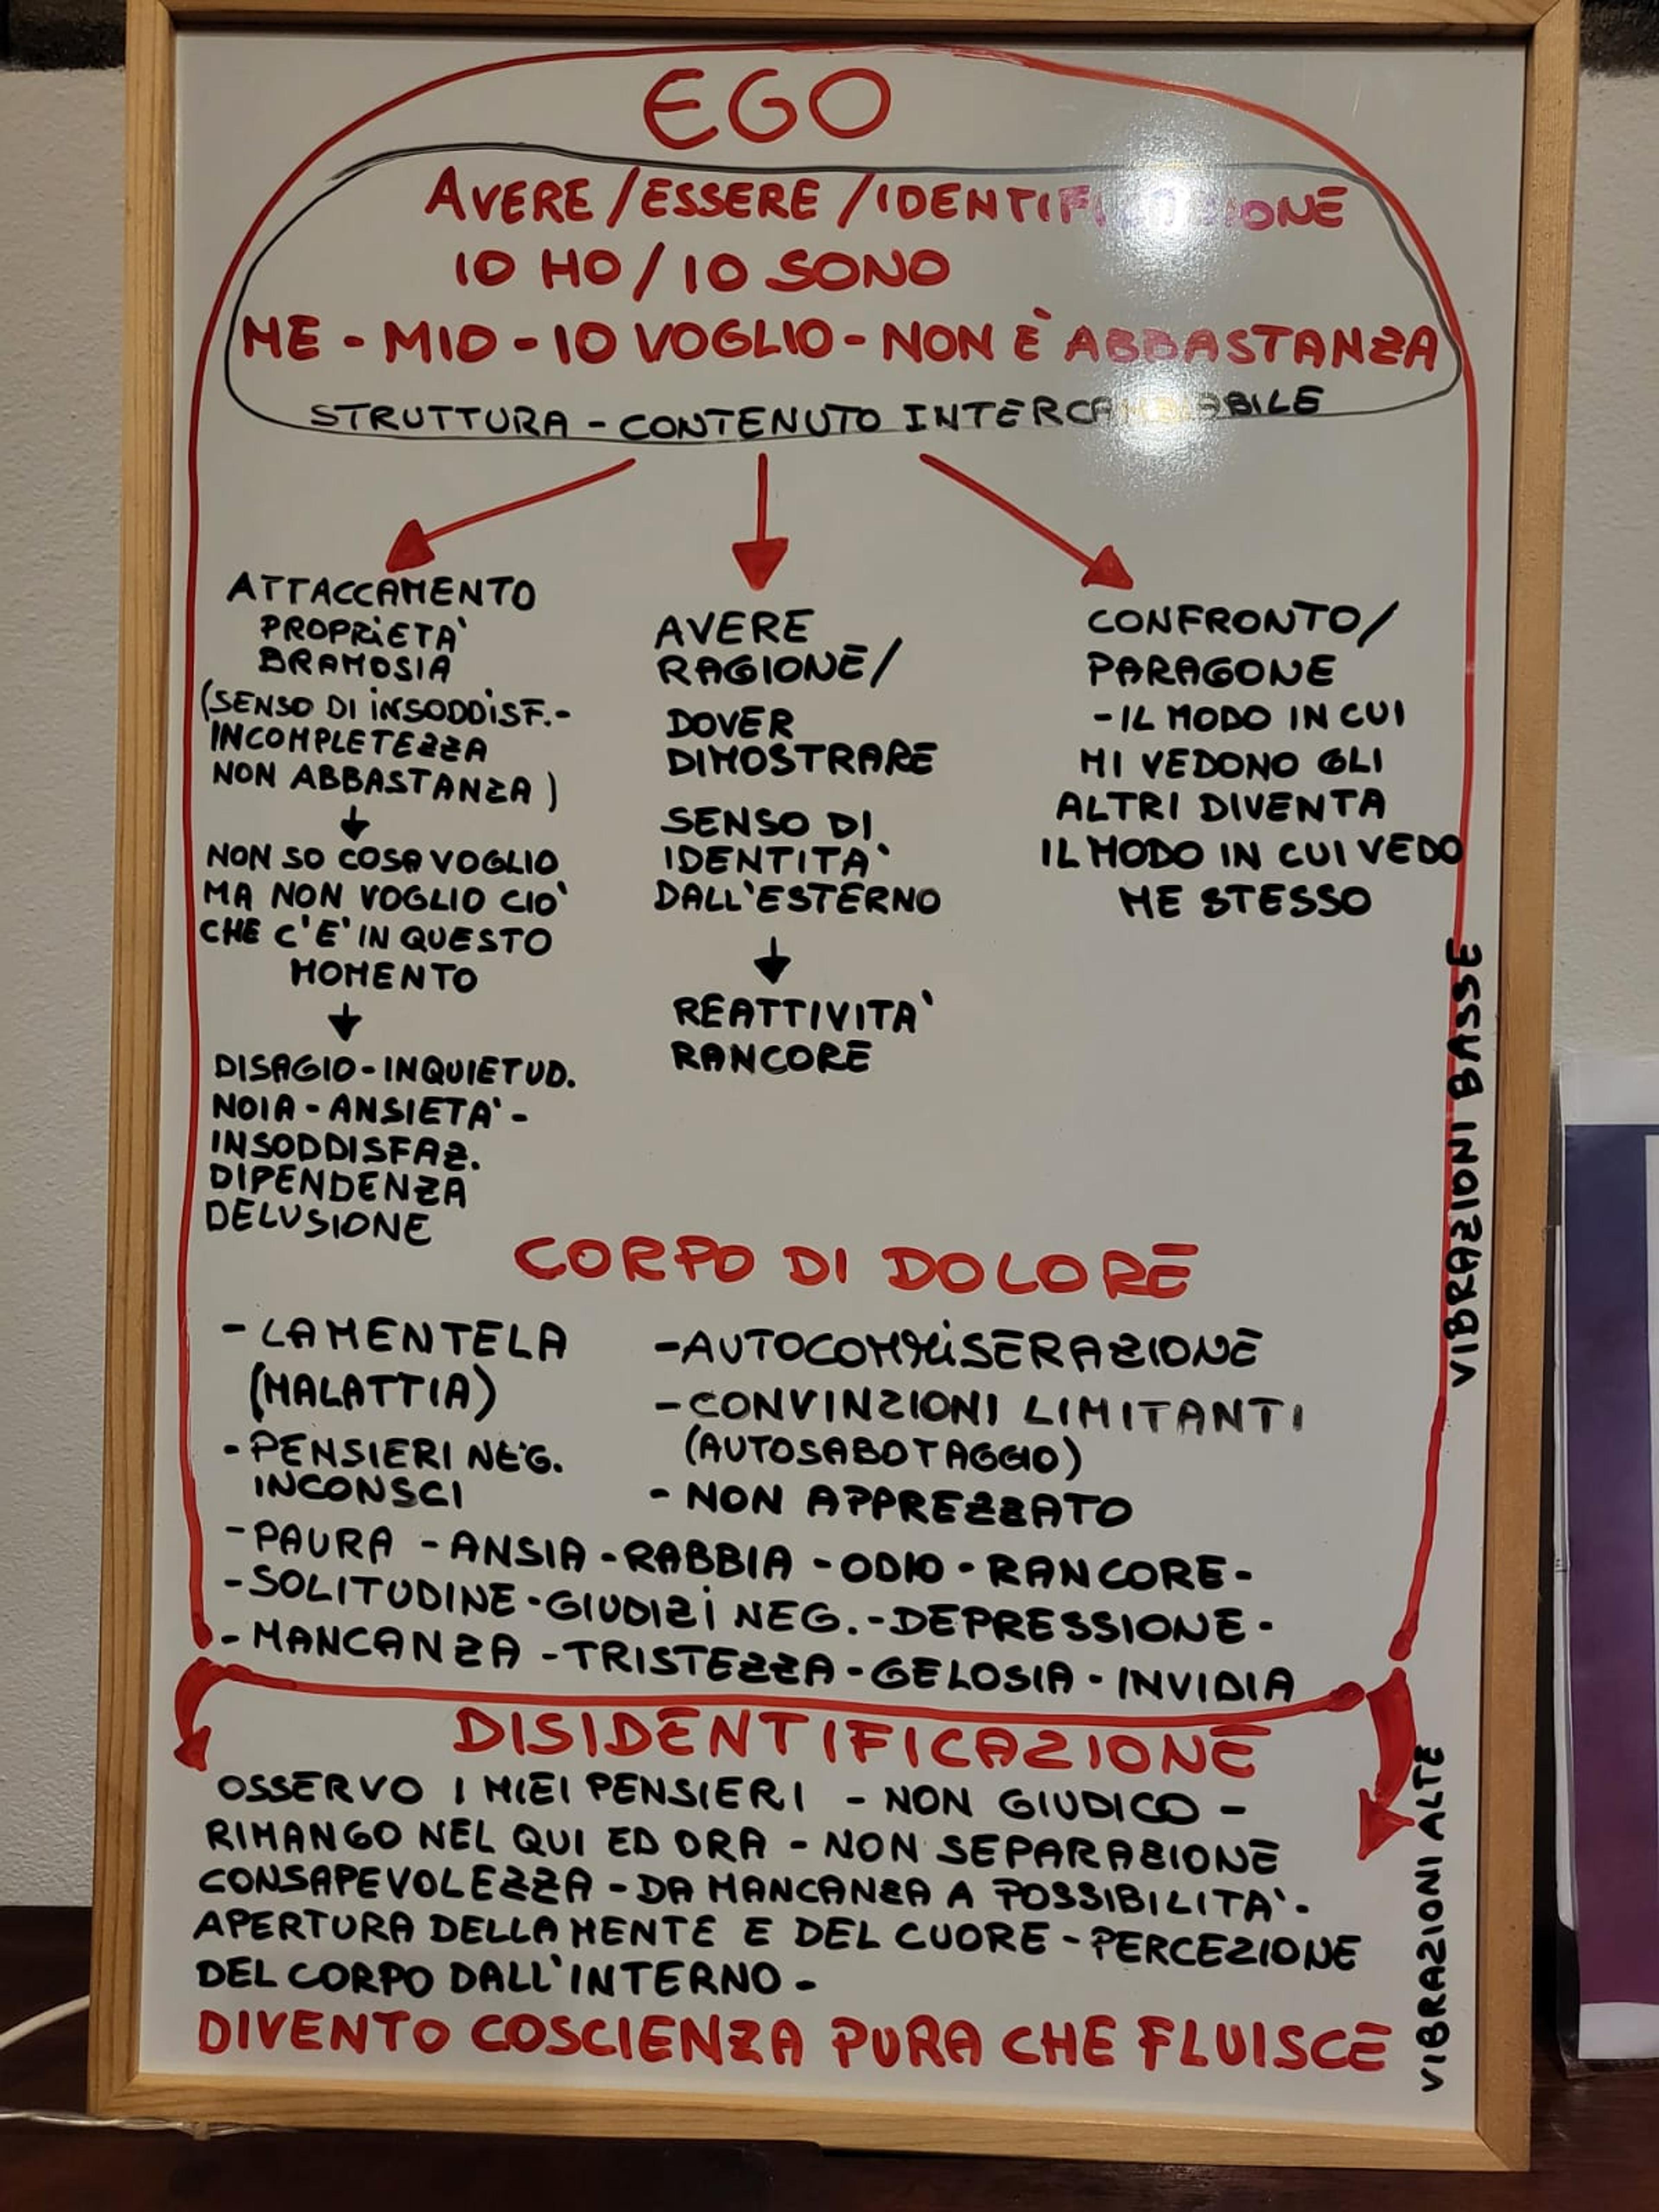 EGO
AVERE / ESSERE / IDENTIFICAZIONE
IO HO / IO SONO
ME - MIO - IO VOGLIO - NON È ABBASTANZA
STRUTTURA - CONTENUTO INTERCAMBIABILE
ATTACCAMENTO
PROPRIETA'
BRAMOSIA
(SENSO DI INSODDISF.-
INCOMPLETEZZA
NON ABBASTANZA)
NON SO COSA VOGLIO
MA NON VOGLIO CIO'
CHE C'E' IN QUESTO
MOMENTO
DISAGIO - INQUIETUD.
NOIA - ANSIETA' -
INSODDISFAZ.
DIPENDENZA
DELUSIONE
AVERE
RAGIONE/
DOVER
DIMOSTRARE
SENSO DI
IDENTITA'
DALL'ESTERNO
REATTIVITA'
RANCORE
CONFRONTO/
PARAGONE
- IL MODO IN CUI
MI VEDONO GLI
ALTRI DIVENTA
IL MODO IN CUI VEDO
ME STESSO
VIBRAZIONI BASSE
CORPO DI DOLORE
- LAMENTELA
(MALATTIA)
- PENSIERI NEG.
INCONSCI
- AUTOCOMMISERAZIONE
- CONVINZIONI LIMITANTI
(AUTOSABOTAGGIO)
- NON APPREZZATO
- PAURA - ANSIA - RABBIA - ODIO - RANCORE -
- SOLITUDINE - GIUDIZI NEG. - DEPRESSIONE -
- MANCANZA - TRISTEZZA - GELOSIA - INVIDIA
DISIDENTIFICAZIONE
OSSERVO I MIEI PENSIERI - NON GIUDICO -
RIMANGO NEL QUI ED ORA - NON SEPARAZIONE
CONSAPEVOLEZZA - DA MANCANZA A POSSIBILITA' -
APERTURA DELLA MENTE E DEL CUORE - PERCEZIONE
DEL CORPO DALL'INTERNO -
DIVENTO COSCIENZA PURA CHE FLUISCE
VIBRAZIONI ALTE